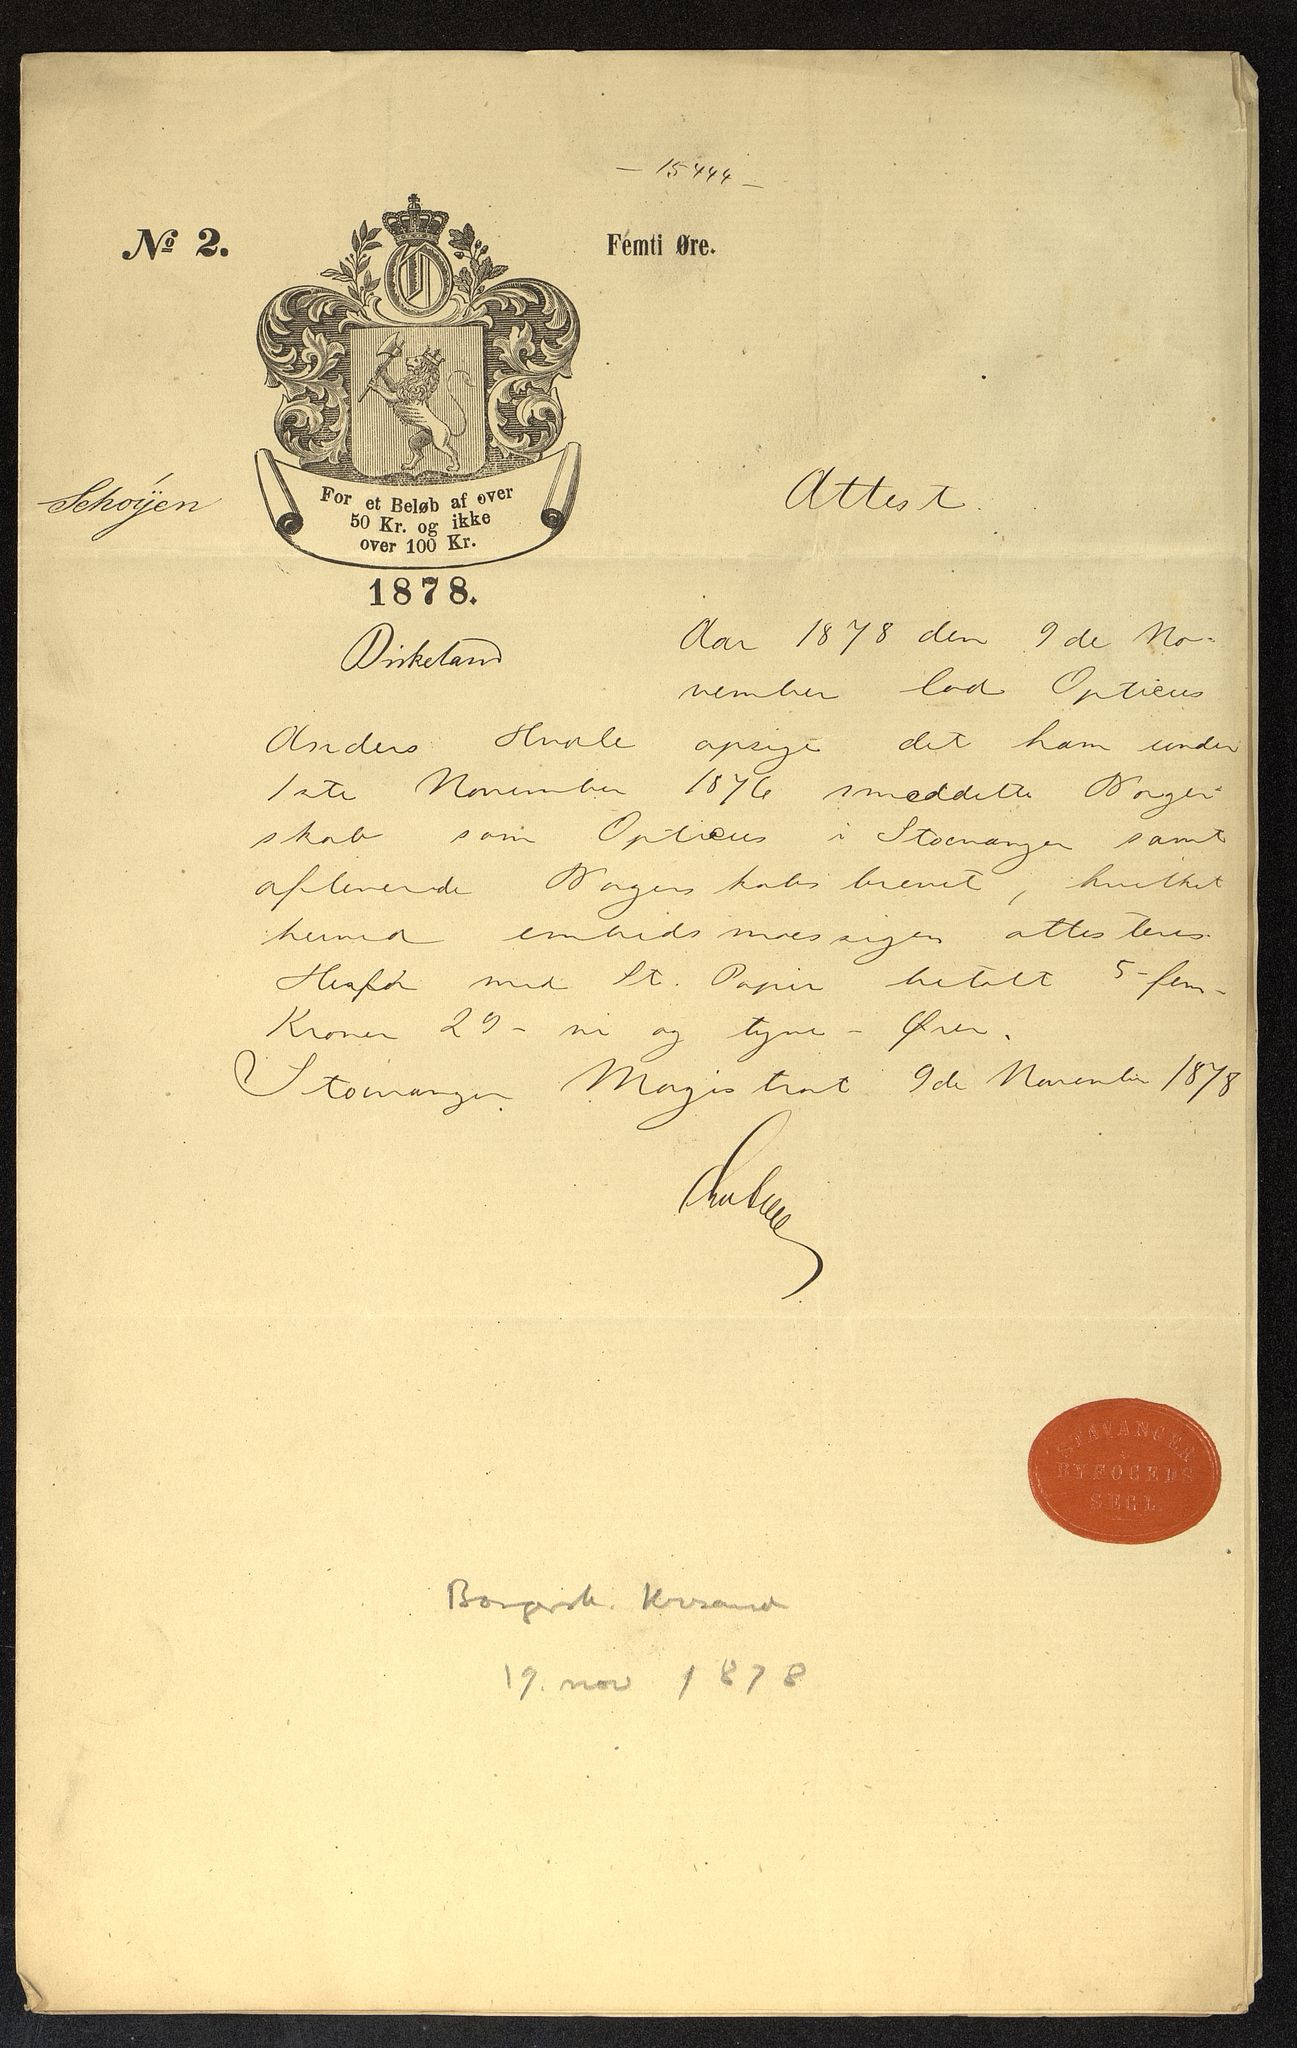 - 15444 -
No 2.
Femti Øre.
Schøÿen
For et Beløb af over
50 Kr. og ikke
over 100 Kr.
1878.
Birkeland
Attest.
Aar 1878 den 9de No-
vember lod Opticus
Anders Hvale opsige det ham under
1ste November 1876 meddelte Borger-
skab som Opticus i Stavanger samt
afleverede Borgerskabsbrevet, hvilket
herved embedsmæssigen attesteres.
Herfor med St. Papir betalt 5 - fem -
Kroner 29 - ni og tyve - Ører.
Stavanger Magistrat 9de November 1878
STAVANGER
BYFOGEDS
SEGL.
Borgersk. Krsand
19. nov 1878